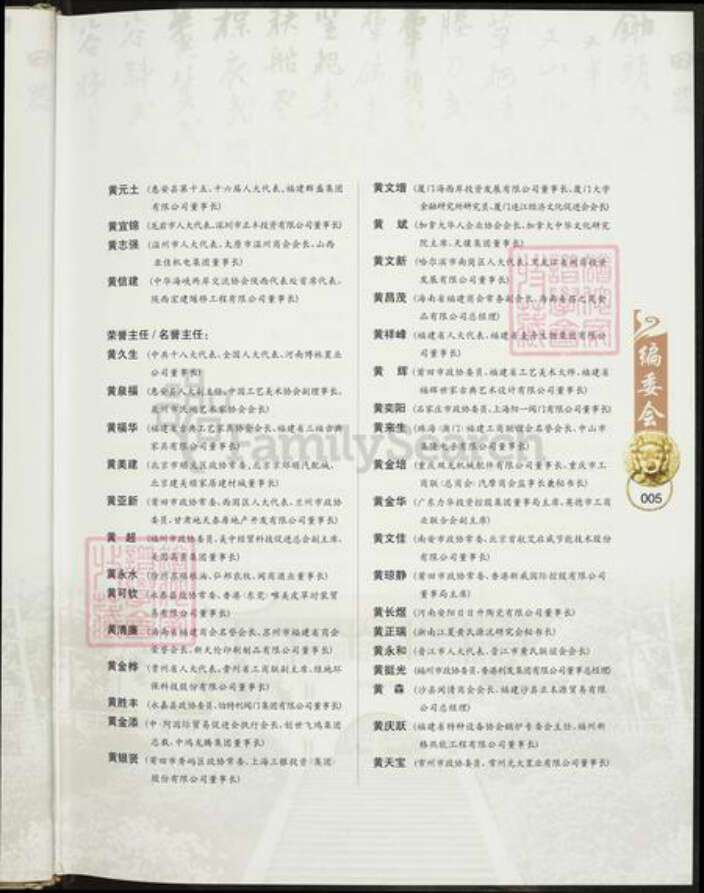 黄元土 (惠安县第十五、十六届人大代表、福建群盛集团
有限公司董事长)
黄宜锦 (龙岩市人大代表、深圳市正丰投资有限公司董事长)
黄志强 (温州市人大代表、太原市温州商会会长、山西
亚佳机电集团董事长)
黄信建 (中华海峡两岸交流协会陕西代表处首席代表、
陕西宏建隧桥工程有限公司董事长)
荣誉主任/名誉主任：
黄久生 (中共十八大代表、全国人大代表、河南博林置业
公司董事长)
黄泉福 (惠安县人大副主任、中国工艺美术协会副理事长、
泉州市民间艺术家协会会长)
黄福华 (福建省古典工艺家具协会会长、福建省三福古典
家具有限公司董事长)
黄美建 (北京市顺义区政协常委、北京京郊顺汽配城、
北京建美顺家居建材城董事长)
黄亚新 (莆田市政协常委、西固区人大代表、兰州市政协
委员、甘肃地天泰房地产开发有限公司董事长)
黄 超 (福州市政协委员、美中经贸科技促进总会副主席、
美国高贵集团董事长)
黄永水
黄可钦
黄清廉
荣誉会长、新天伦印刷制品有限公司董事长)
黄金桦 (贵州省人大代表、贵州省工商联副主席、绿地环
保科技股份有限公司董事长)
黄胜丰 (永嘉县政协委员、伯特利阀门集团有限公司董事长)
黄金添 (中·阿国际贸易促进会执行会长、创世飞鸿集团
总裁、中鸿龙腾集团董事长)
黄银贤 (莆田市秀屿区政协常委、上海三银投资(集团)
股份有限公司董事长)
黄文增 (厦门海西岸投资发展有限公司董事长、厦门大学
金融研究所研究员、厦门连江经济文化促进会会长)
黄 斌 (加拿大华人企业协会会长、加拿大中华文化研究
院主席、天骥集团董事长)
黄文新 (哈尔滨市南岗区人大代表、黑龙江省
发展有限公司董事长)
黄昌茂 (海南省福建商会常务副会长、海南
品有限公司总经理)
黄祥峰 (福建省人大代表、福建省
司董事长)
黄 辉 (莆田市政协委员、福建省工艺美术大师、福建省
福辉世家古典艺术设计有限公司董事长)
黄奕阳 (石家庄市政协委员、上海恒一阀门有限公司董事长)
黄来生 (珠海(澳门)福建工商联谊会名誉会长、中山市
基信电子有限公司董事长)
黄金培 (重庆双龙机械配件有限公司董事长、重庆市工
商联(总商会)汽摩商会监事长兼秘书长)
黄金华 (广东力华投资控股集团董事局主席、英德市工商
业联合会副主席)
黄文佳 (南安市政协常委、北京首航艾启威节能技术股份
有限公司董事长)
黄琼静 (莆田市政协常委、香港新威国际控股有限公司
董事局主席)
黄长煜 (河南安阳日日升陶瓷有限公司董事长)
黄正瑞 (浙南江夏黄氏源流研究会秘书长)
黄永和 (晋江市人大代表、晋江市黄氏联谊会会长)
黄挺光 (福州市政协委员、香港利发集团有限公司董事总经理)
黄 森 (沙县闽清商会会长、福建沙县正本源贸易有限
公司总经理)
黄庆跃 (福建省特种设备协会锅炉专委会主任、福州新
格热能工程有限公司董事长)
黄天宝 (常州市政协委员、常州光大置业有限公司董事长)
编委会
005
FamilySearch